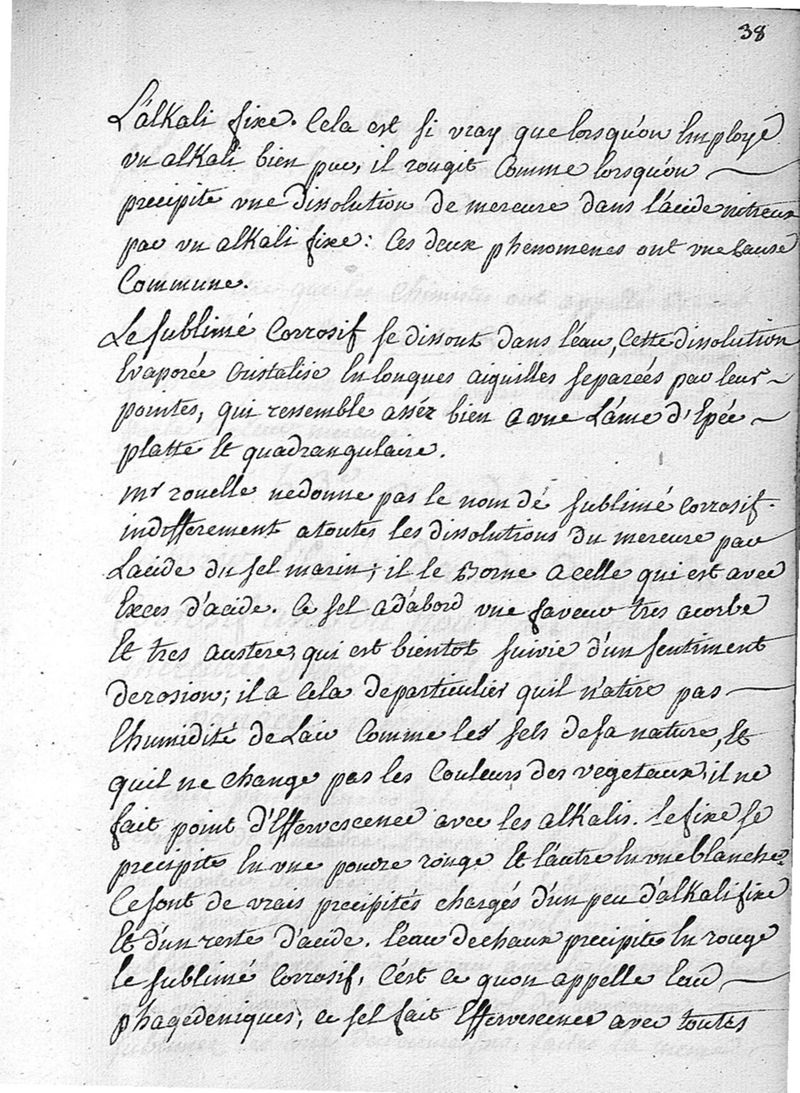 38
L'alkali fixe. Cela est si vray que lorsqu'on Employe
vn alkali bien pur, il rougit Comme lorsqu'on
precipite vne dissolution de mercure dans l'acide nitreux
par vn alkali fixe: Ces deux phenomenes ont vne Cause
Commune.
Le sublimé Corrosif se dissout dans l'eau, Cette dissolution
Evaporée Cristalise En longues aiguilles separées par leurs
pointes, qui ressemble assés bien a vne Lame d'Epée
platte Et quadrangulaire.
mr rouelle ne donne pas le nom de sublimé Corrosif
indifferement a toutes les dissolutions du mercure par
L'acide du sel marin; il le Borne a celle qui est avec
Exces d'acide. Ce sel a d'abord vne saveur tres acerbe
Et tres austere, qui est bientot suivie d'un sentiment
derosion; il a Cela de particulier quil n'atire pas
l'humidité de L'air Comme les sels de sa nature, Et
quil ne change pas les Couleurs des vegetaux, il ne
fait point d'Effervescence avec les alkalis. le fixe se
precipite En vne poudre rouge Et l'autre En vne blanche.
Ce sont de vrais precipités chargés d'un peu d'alkali fixe
Et d'un reste d'acide. l'eau de chaux precipite En rouge
le sublimé Corrosif, C'est ce quon appelle l'eau
phagedeniques; ce sel fait Effervescence avec toutes